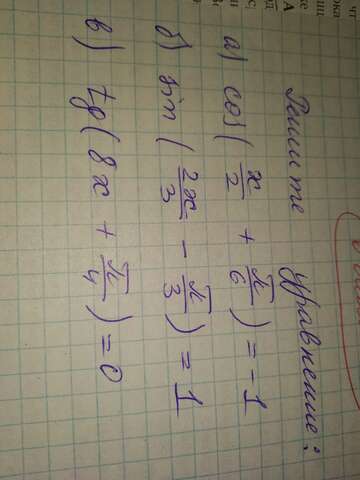 Решите уравнение:
а) cos(x/2 + π/6) = -1
б) sin(2x/3 - π/3) = 1
в) tg(8x + π/4) = 0